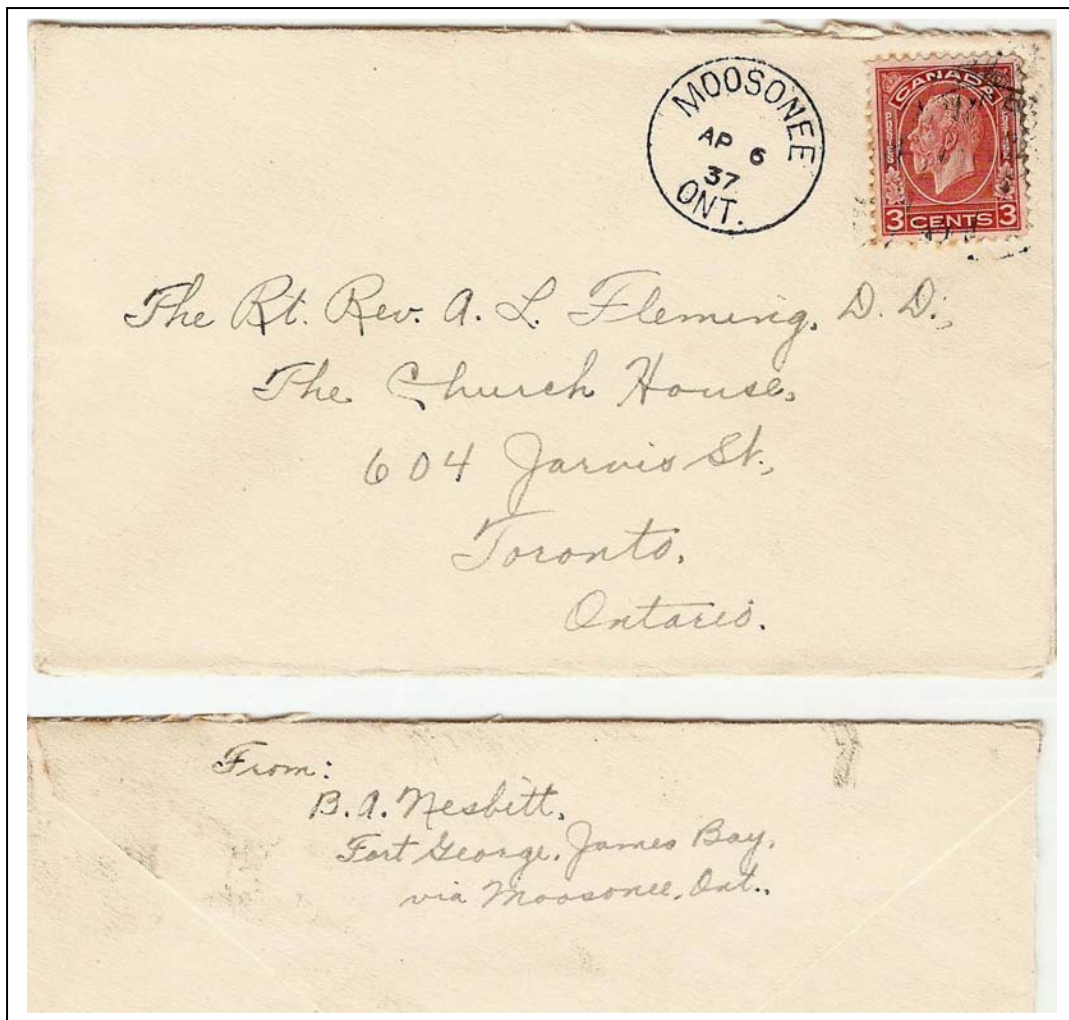 MOOSONEE
AP 6
37
ONT.
CANADA
POSTES POSTAGE
3 CENTS 3
The Rt. Rev. A. L. Fleming, D. D.,
The Church House,
604 Jarvis St.,
Toronto,
Ontario.
From:
B. A. Nesbitt,
Fort George, James Bay,
via Moosonee, Ont.,